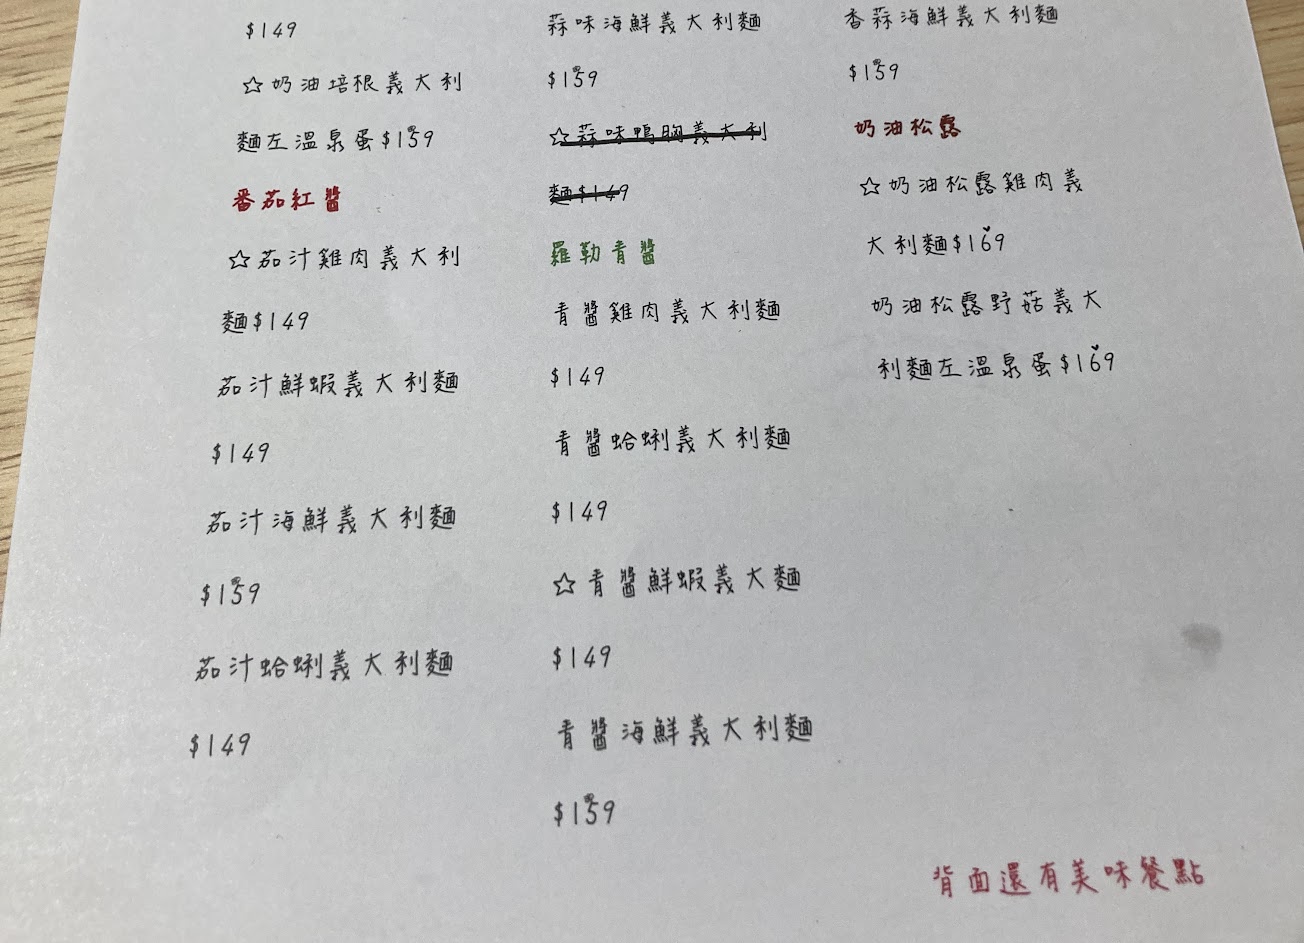 $149
☆奶油培根義大利
麵左溫泉蛋$159
番茄紅醬
☆茄汁雞肉義大利
麵$149
茄汁鮮蝦義大利麵
$149
茄汁海鮮義大利麵
$159
茄汁蛤蜊義大利麵
$149
蒜味海鮮義大利麵
$159
☆蒜味鴨胸義大利
麵$149
羅勒青醬
青醬雞肉義大利麵
$149
青醬蛤蜊義大利麵
$149
☆青醬鮮蝦義大麵
$149
青醬海鮮義大利麵
$159
香蒜海鮮義大利麵
$159
奶油松露
☆奶油松露雞肉義
大利麵$169
奶油松露野菇義大
利麵左溫泉蛋$169
背面還有美味餐點